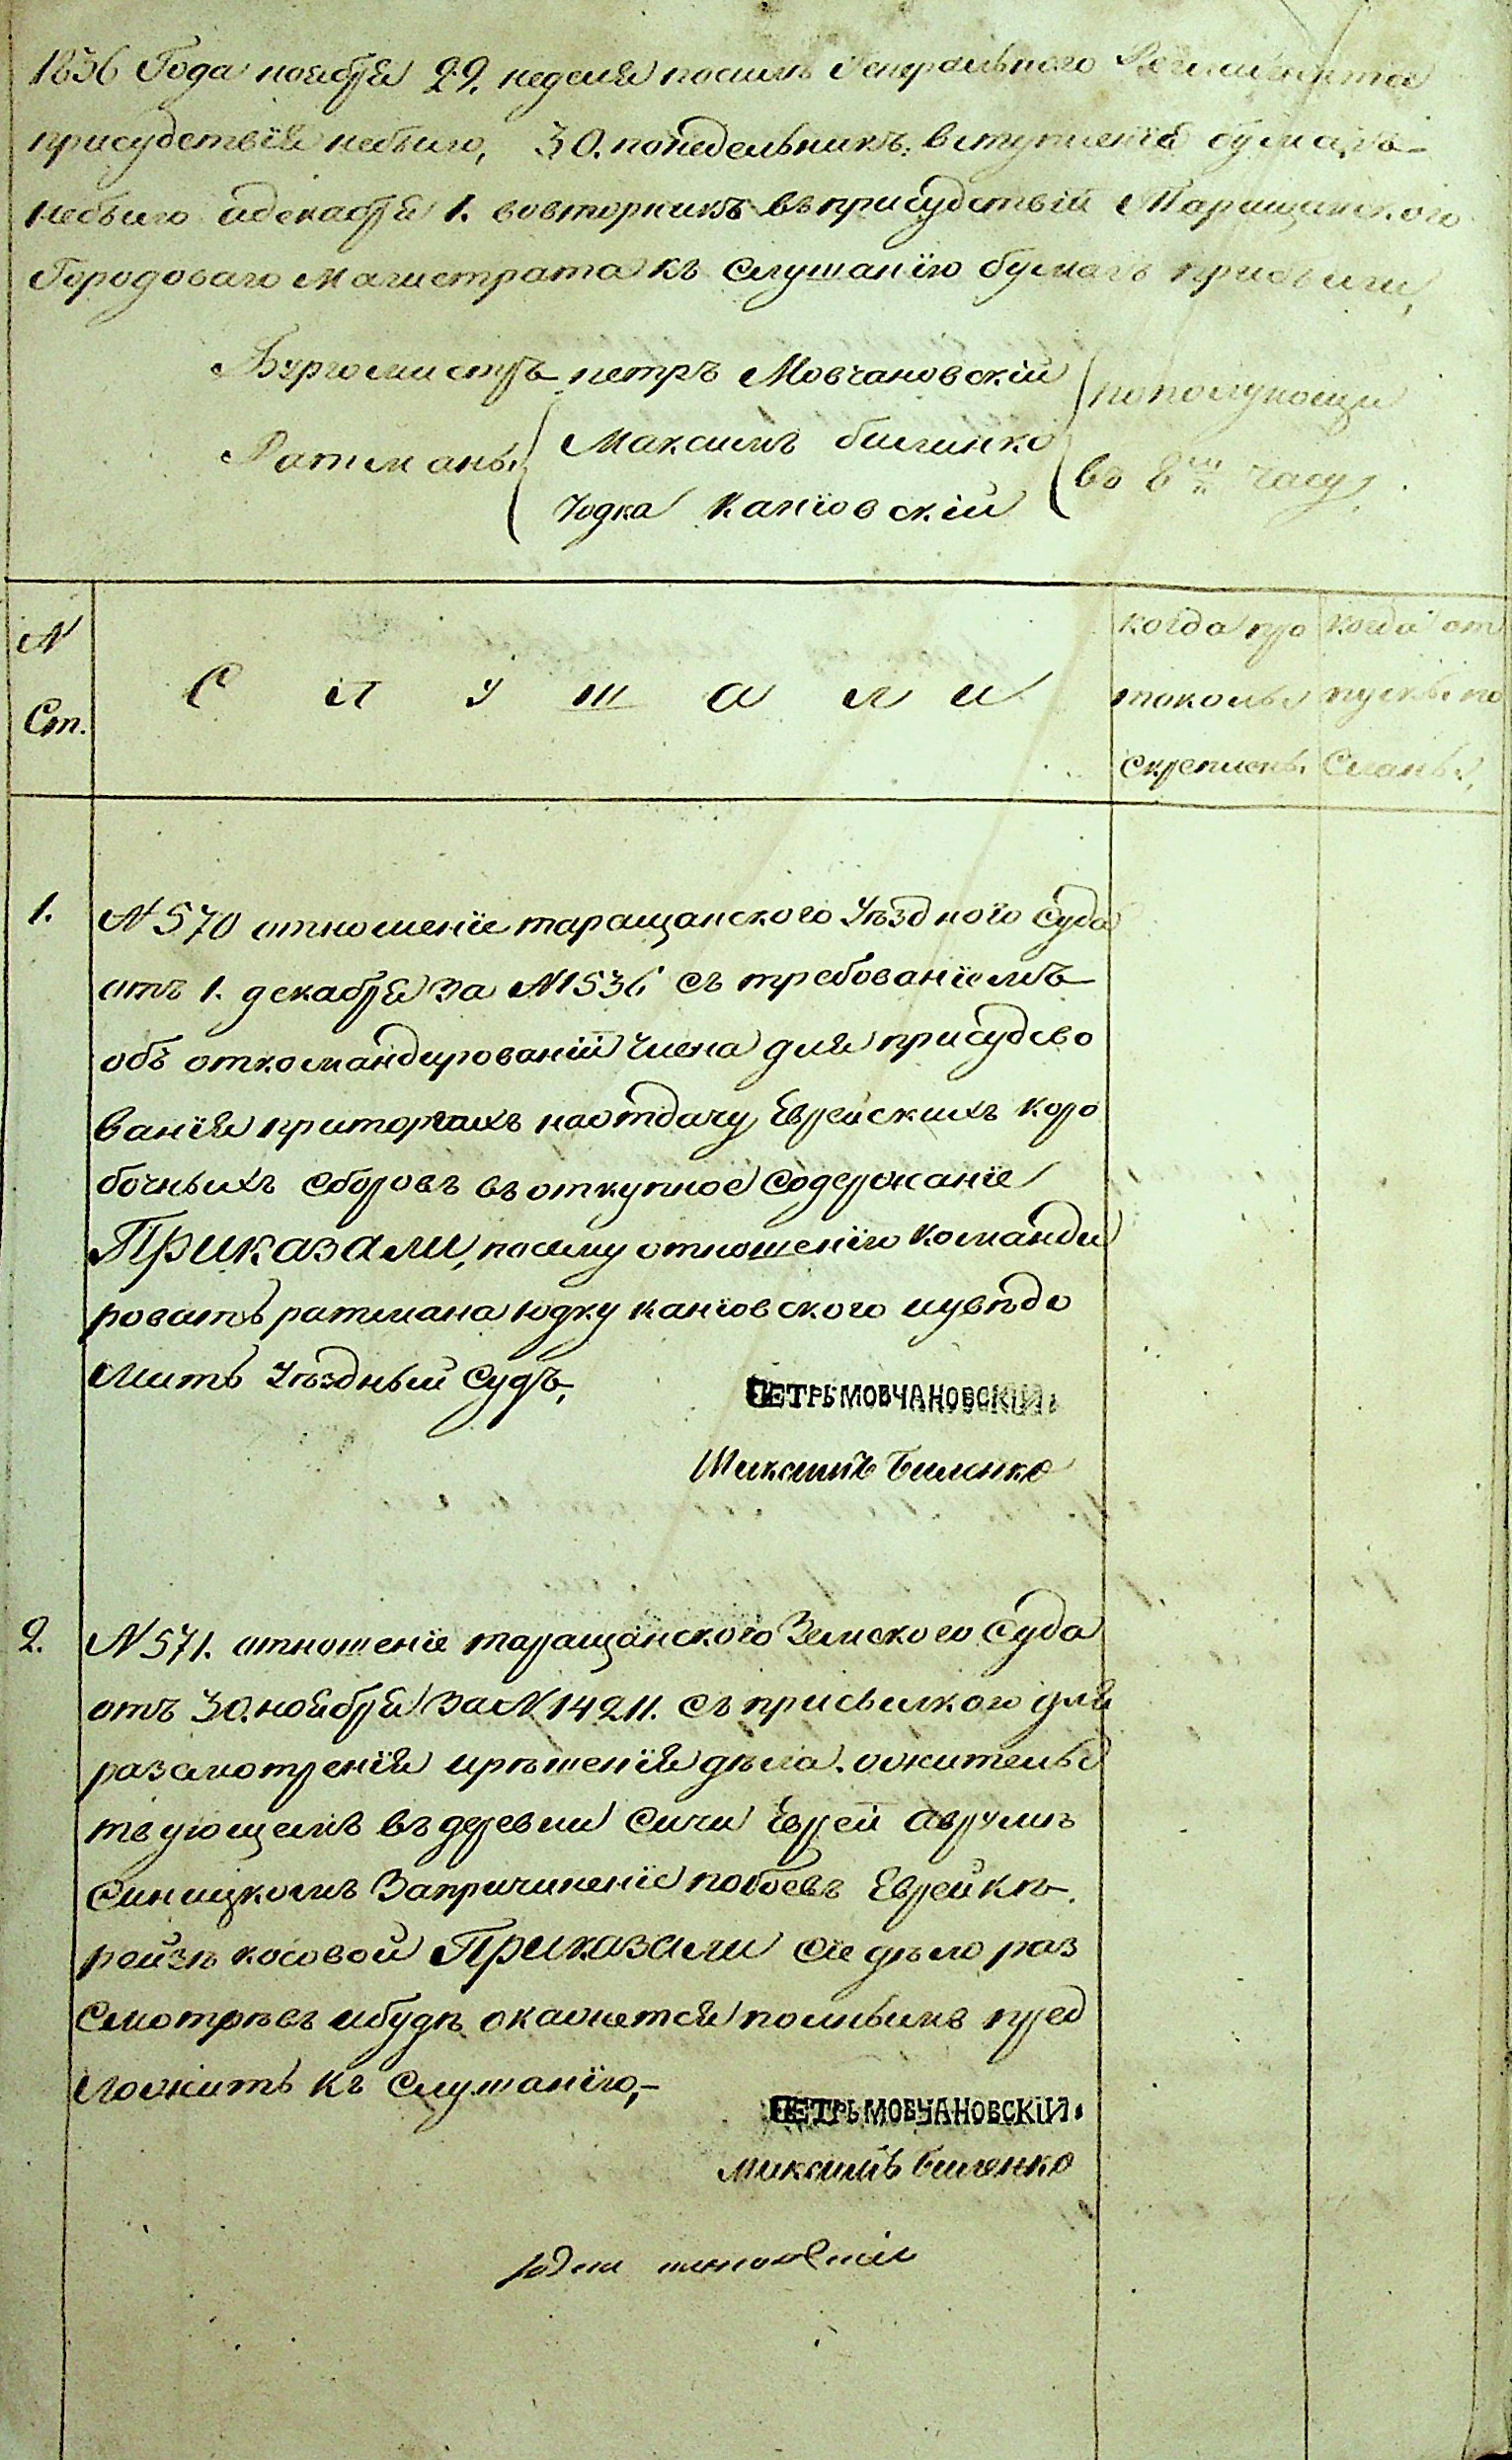 1836 Года ноября 29. неделя посилѣ Генерального Регламента
присудствія небыло, 30. понедельникъ. вступленія бумагъ
небыло адекабря 1. вовторникъ въприсудствій Таращанского
Городоваго Магистрата къ слушанію бумагъ прибыли,
Бургомистръ петръ Мовчановскій
пополуночи
Ратманы
Максимъ билинко
Юдка каніовскій
въ 8мъ часу,
N
Ст.
С л у ш а л и
когда про
токолы
скреплены.
когда от
пуски по
сланы,
1.
N 570 отношеніе таращанского Уѣздного Суда
отъ 1. декабря за N 1536 съ требованіемъ
объ откомандированій члена для присудсво
ванія приторгахъ наотдачу Еврейскихъ коро
бочныхъ сборовъ въоткупное содержаніе
Приказали, посему отношенію команди
ровать ратмана юдку каніовского иувѣдо
мить Уѣздный Судъ,
ПЕТРЬ МОВЧАНОВСКІЙ.
Максимъ Биленко
2.
N 571. отношеніе таращанского Земского Суда
отъ 30. ноября за N 14211. съ присылкою для
разсмотренія ирѣшенія дѣла. ожительс
твующемъ въдеревни Сичи Еврей Аврумъ
Синицкомъ Запричиненіе побоевъ Еврейкѣ
рейзѣ косовой Приказали сіе дѣло раз
смотрѣвъ ибудѣ окажется полнымъ пред
ложить къ слушанію,-
ПЕТРЬ МОВЧАНОВСКІЙ.
Максимъ биленко